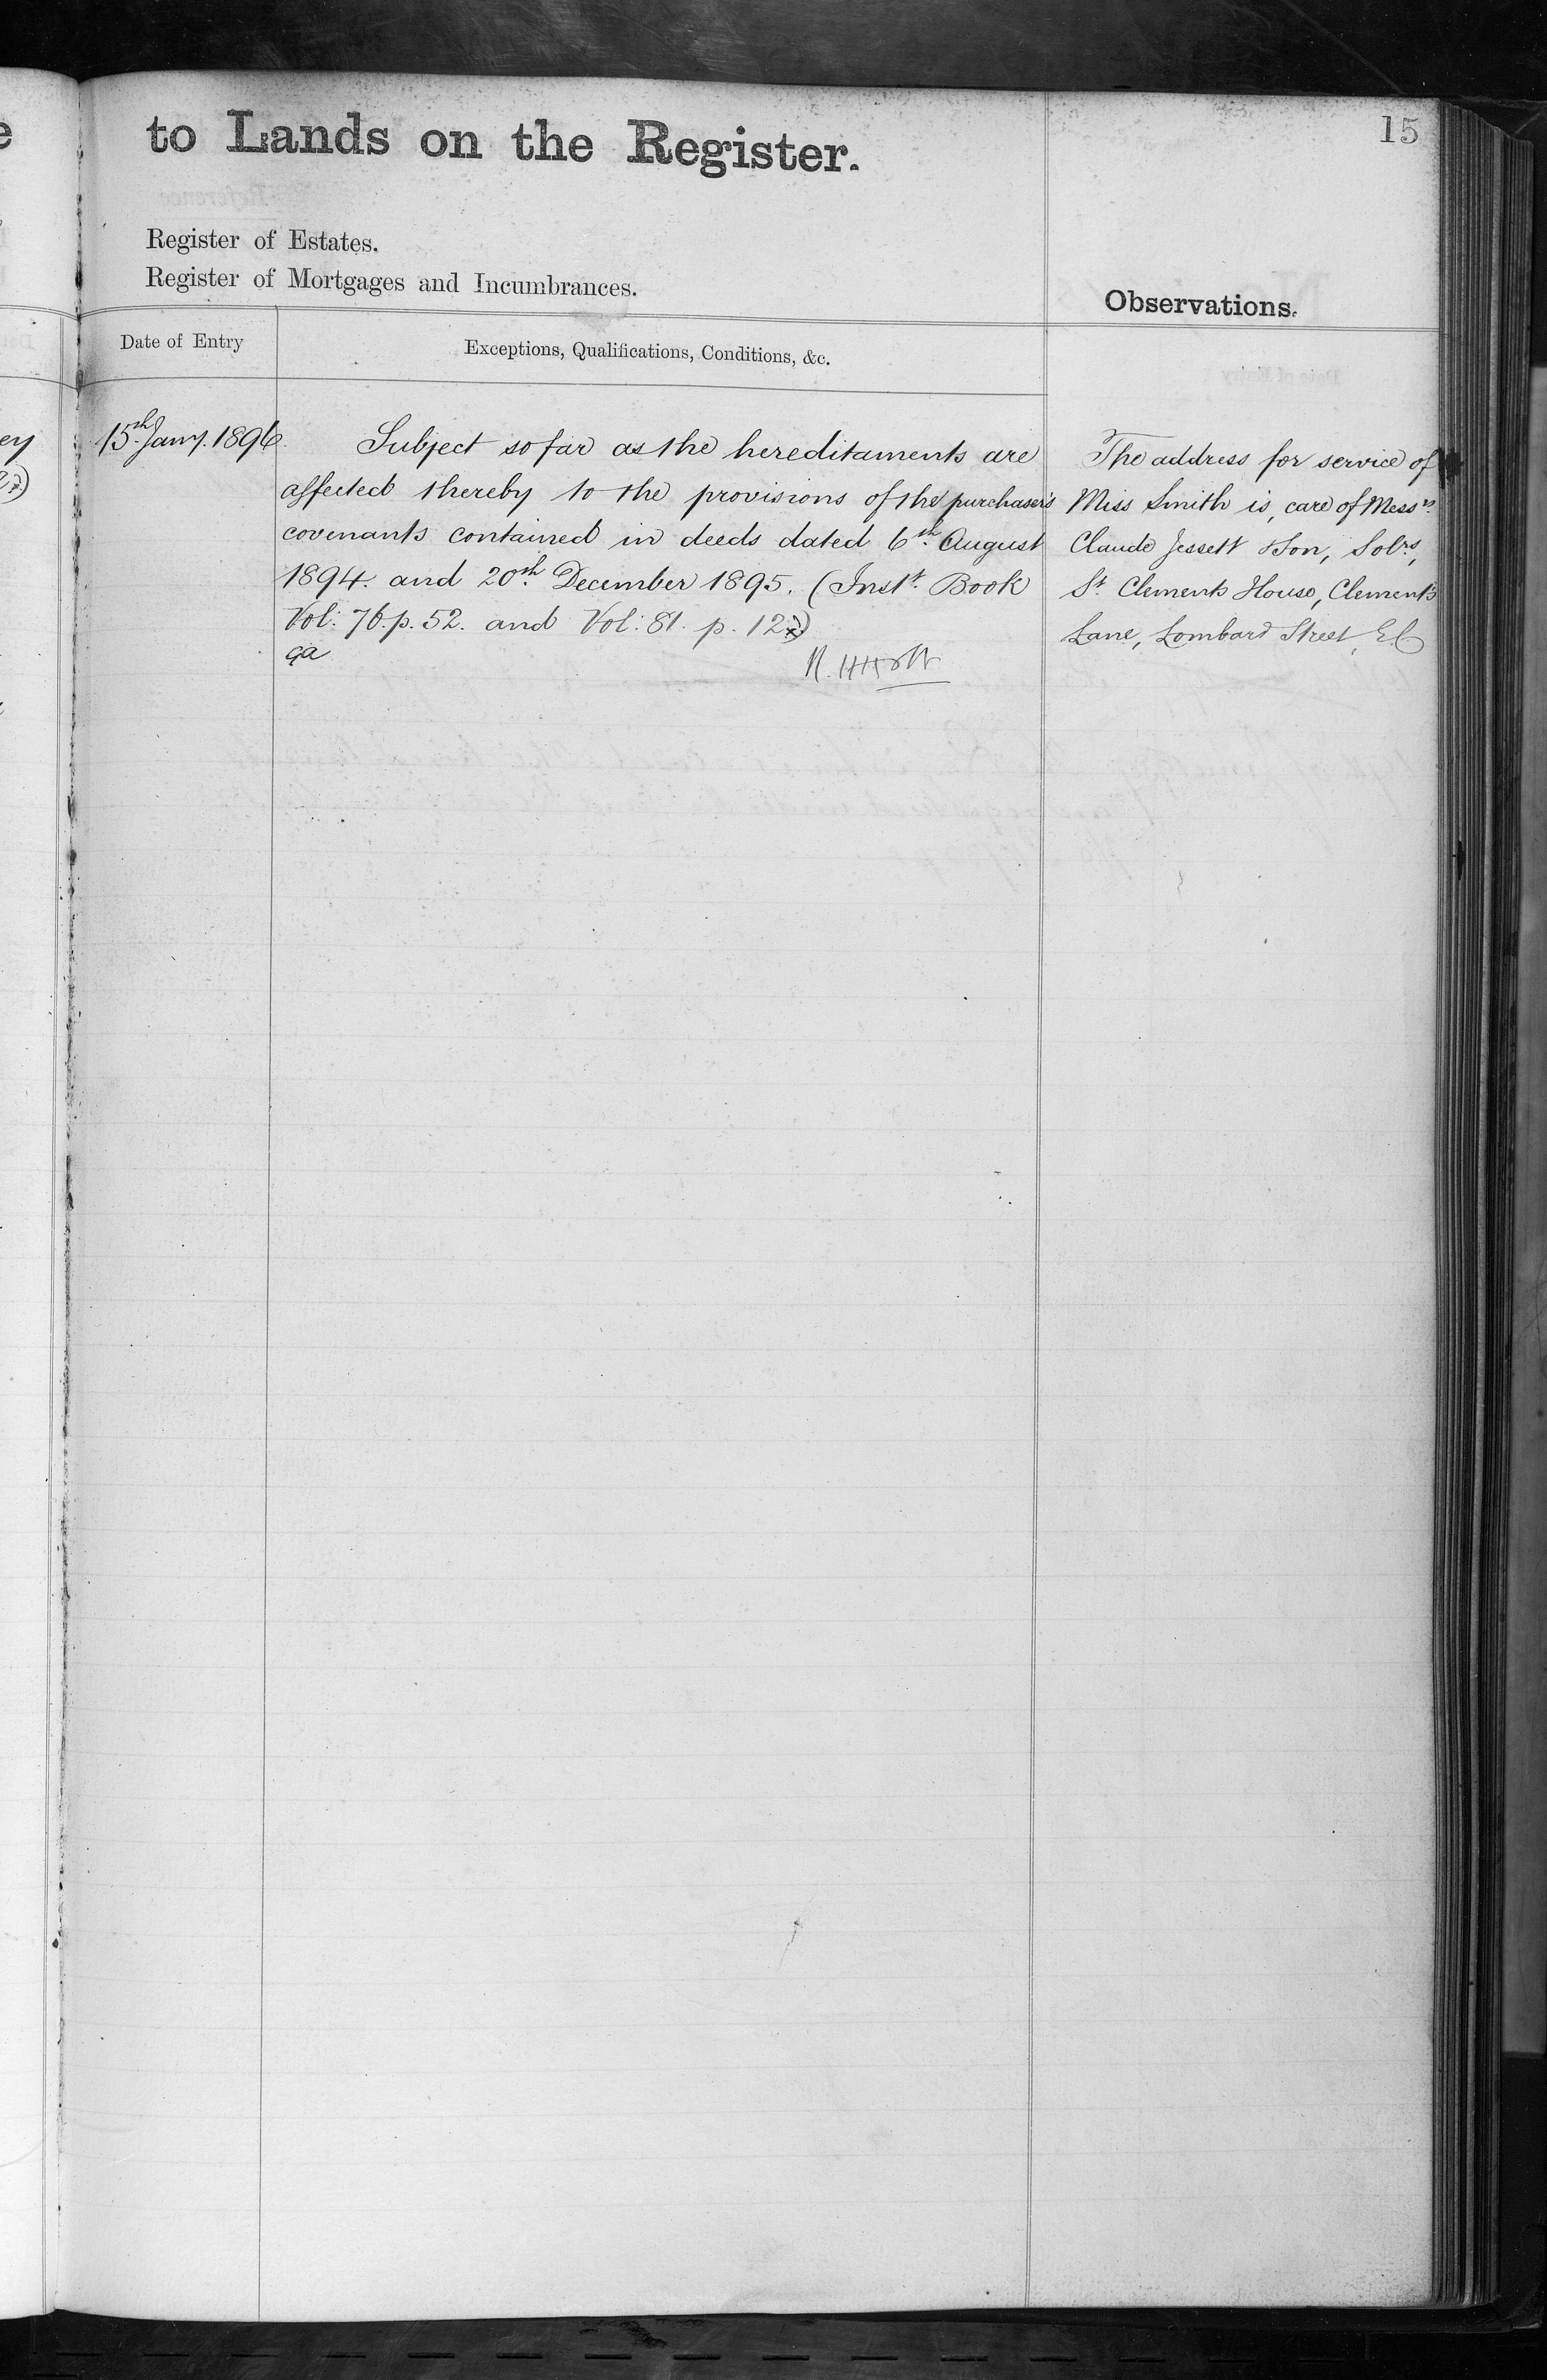 to Lands on the Register.
15
Register of Estates.
Register of Mortgages and Incumbrances.
Observations.
Date of Entry
Exceptions, Qualifications, Conditions, &c.
15th Jany. 1896.
Subject so far as the hereditaments are
affected thereby to the provisions of the purchaser's
covenants contained in deeds dated 6th August
1894. and 20th December 1895. (Instt. Book
Vol: 76. p. 52. and Vol: 81. p. 12
The address for service of
Miss Smith is, care of Messrs.
Claude Jessett & Son, Solrs,
St Clements House, Clement's
Lane, Lombard Street, EC